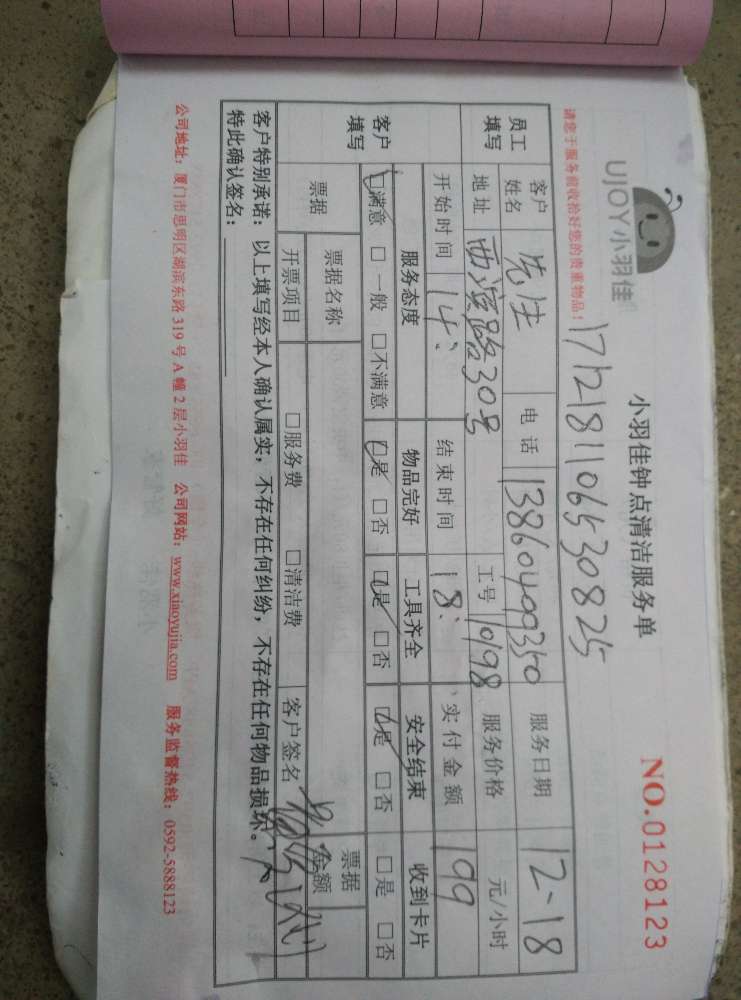 UJOY小羽佳
小羽佳钟点清洁服务单
NO.0128123
请您于服务前收拾好您的贵重物品!
1712181106530825
员工填写
客户姓名 先生 电话 13860499350 服务日期 12-18
地址 西滨路30号 工号 10198 服务价格 元/小时
开始时间 14: 结束时间 18: 实付金额 199
客户填写
服务态度 物品完好 工具齐全 安全结束 收到卡片
☑满意 □一般 □不满意 ☑是 □否 ☑是 □否 ☑是 □否 □是 □否
票据 票据名称 票据金额
开票项目 □服务费 □清洁费 客户签名
客户特别承诺:以上填写经本人确认属实,不存在任何纠纷,不存在任何物品损坏。
特此确认签名:
公司地址:厦门市思明区湖滨东路319号A幢2层小羽佳 公司网站:www.xiaoyujia.com 服务监督热线:0592-5888123